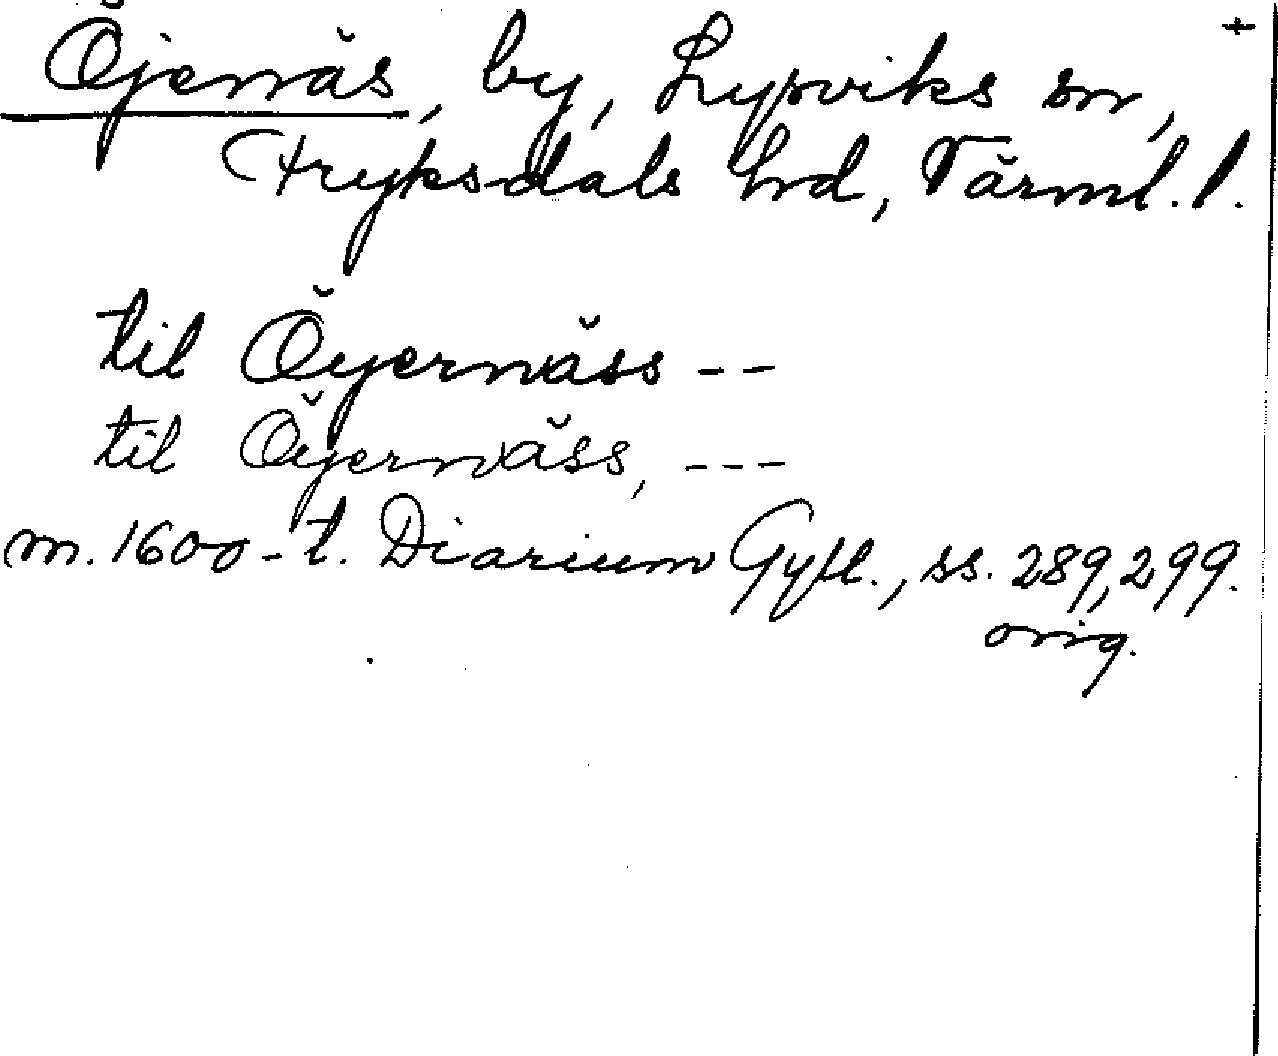 +
Öjenäs, by, Lysviks sn,
Fryksdals hd, Värml. l.
til Öyernäss --
til Öyernäss, ---
m. 1600-t. Diarium Gyll., ss. 289, 299.
orig.